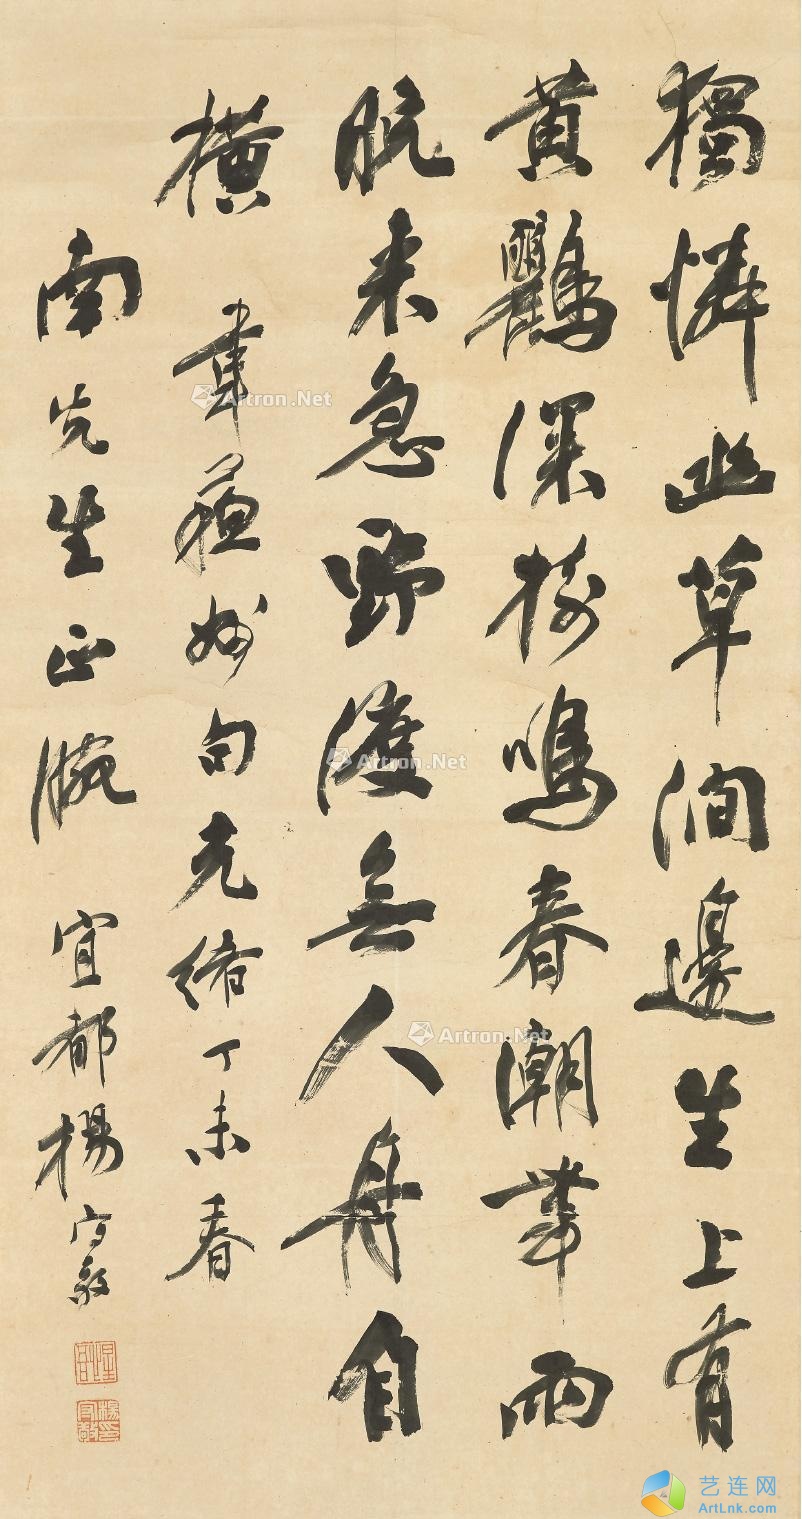 獨憐幽草澗邊生上有
黃鸝深樹鳴春潮帶雨
晚來急野渡無人舟自
橫 韋蘇州句光緒丁未春
南先生正腕 宜都楊守敬
星吾
楊守敬印
Artron.Net
Artron.Net
Artron.Net
艺连网
ArtLnk.com